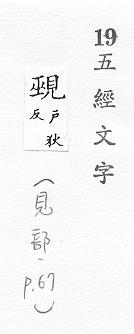 19五經文字
覡
戶狄
反
（見部、p.67）